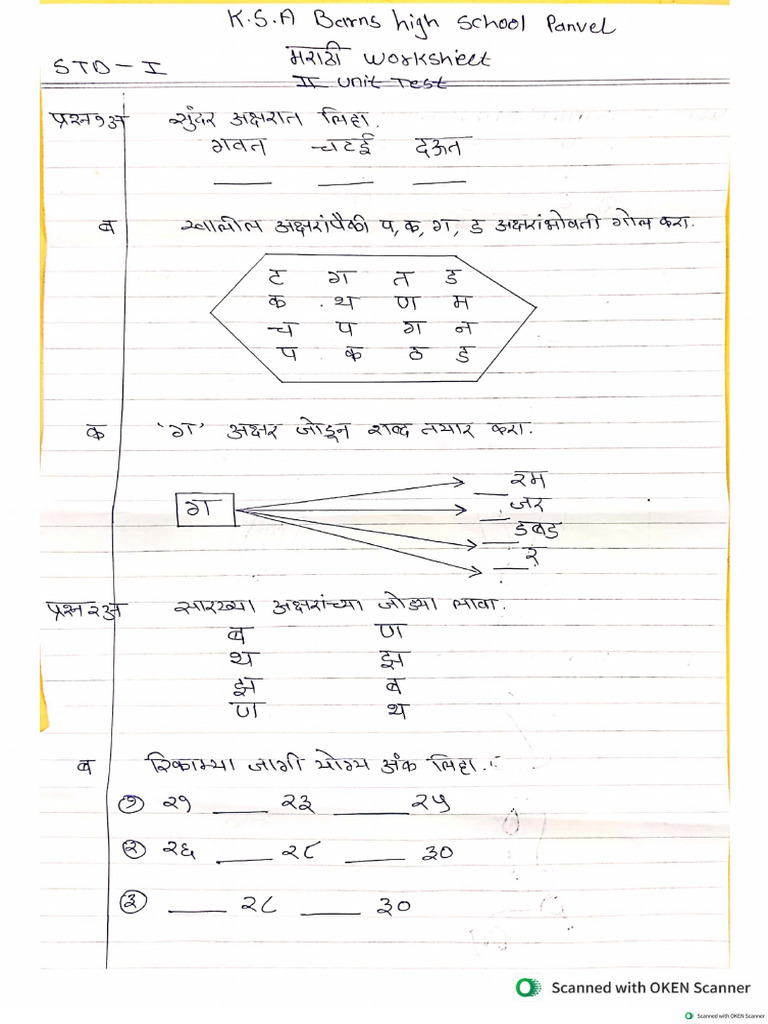 K.S.A Barns high school Panvel
मराठी worksheet
STD - I
II Unit Test
प्रश्न१अ सुंदर अक्षरात लिहा.
गवत चटई दऊत
___ ___ ___
ब खालील अक्षरांपैकी प, क, ग, ड अक्षरांभोवती गोल करा.
ट ग त ड
क थ ण म
च प ग न
प क ठ ड
क 'ग' अक्षर जोडून शब्द तयार करा.
___रम
ग ___जर
___डबड
___रं
प्रश्न२अ सारख्या अक्षरांच्या जोड्या लावा.
ब ण
थ झ
झ ब
ण थ
ब रिकाम्या जागी योग्य अंक लिहा.
१ २१ ___ २३ ___ २५
२ २६ ___ २८ ___ ३०
३ ___ २८ ___ ३०
Scanned with OKEN Scanner
Scanned with OKEN Scanner